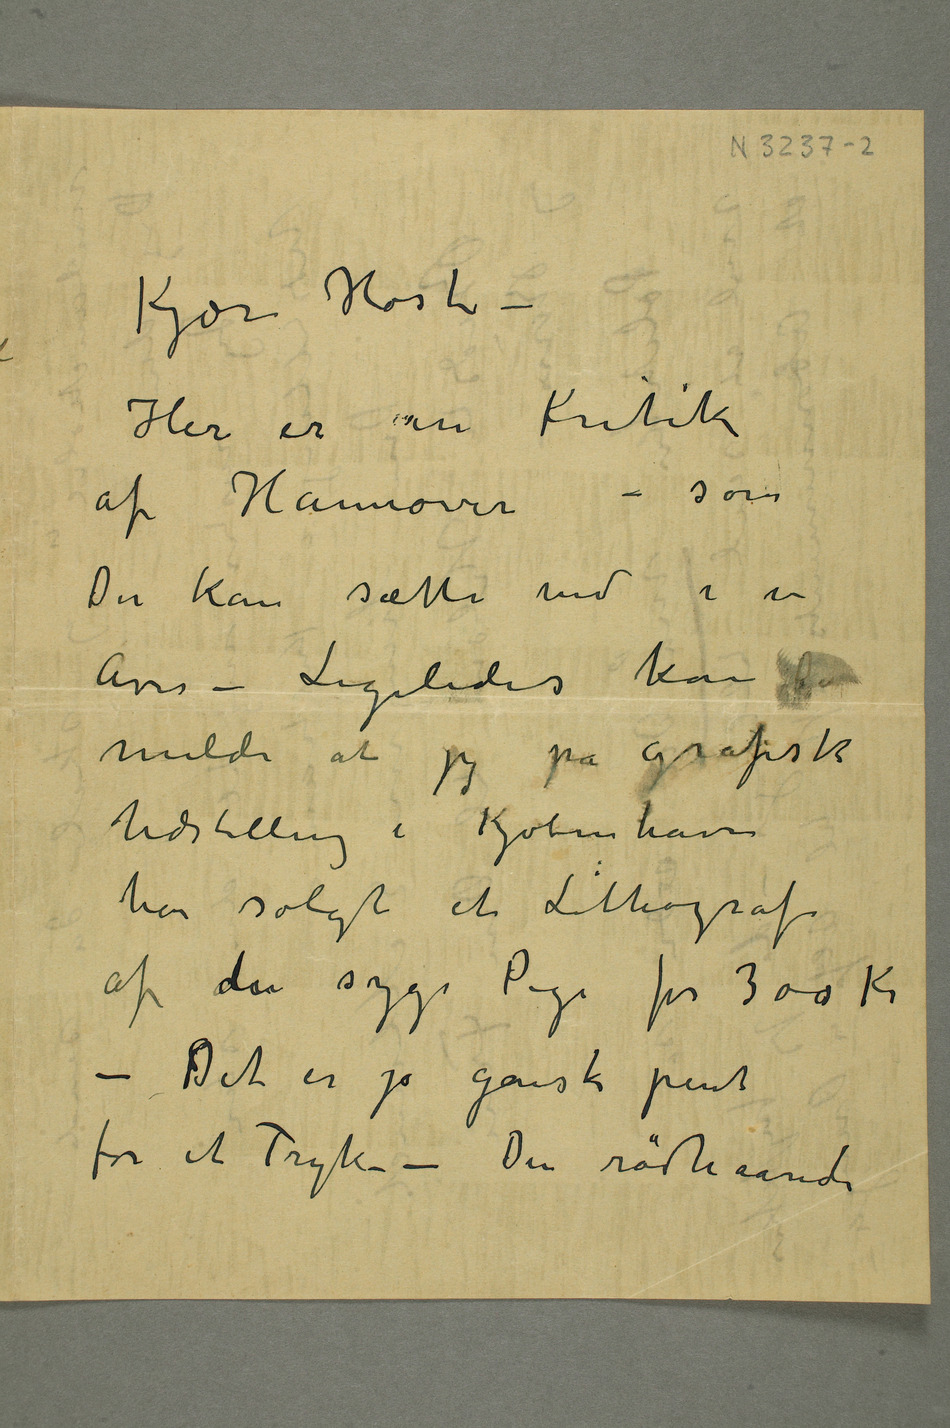 N 3237-2
Kjære Høst –
Her er en Kritik
af Hannover – som
De kan sætte ind i en
Avis – Ligeledes kan De
melde at jeg på grafisk
Udstilling i Kjøbenhavn
har solgt et Lithografi
af den syge Pige for 300 Kr
– Det er jo ganske pent
for et Tryk – – Den rödhaarede